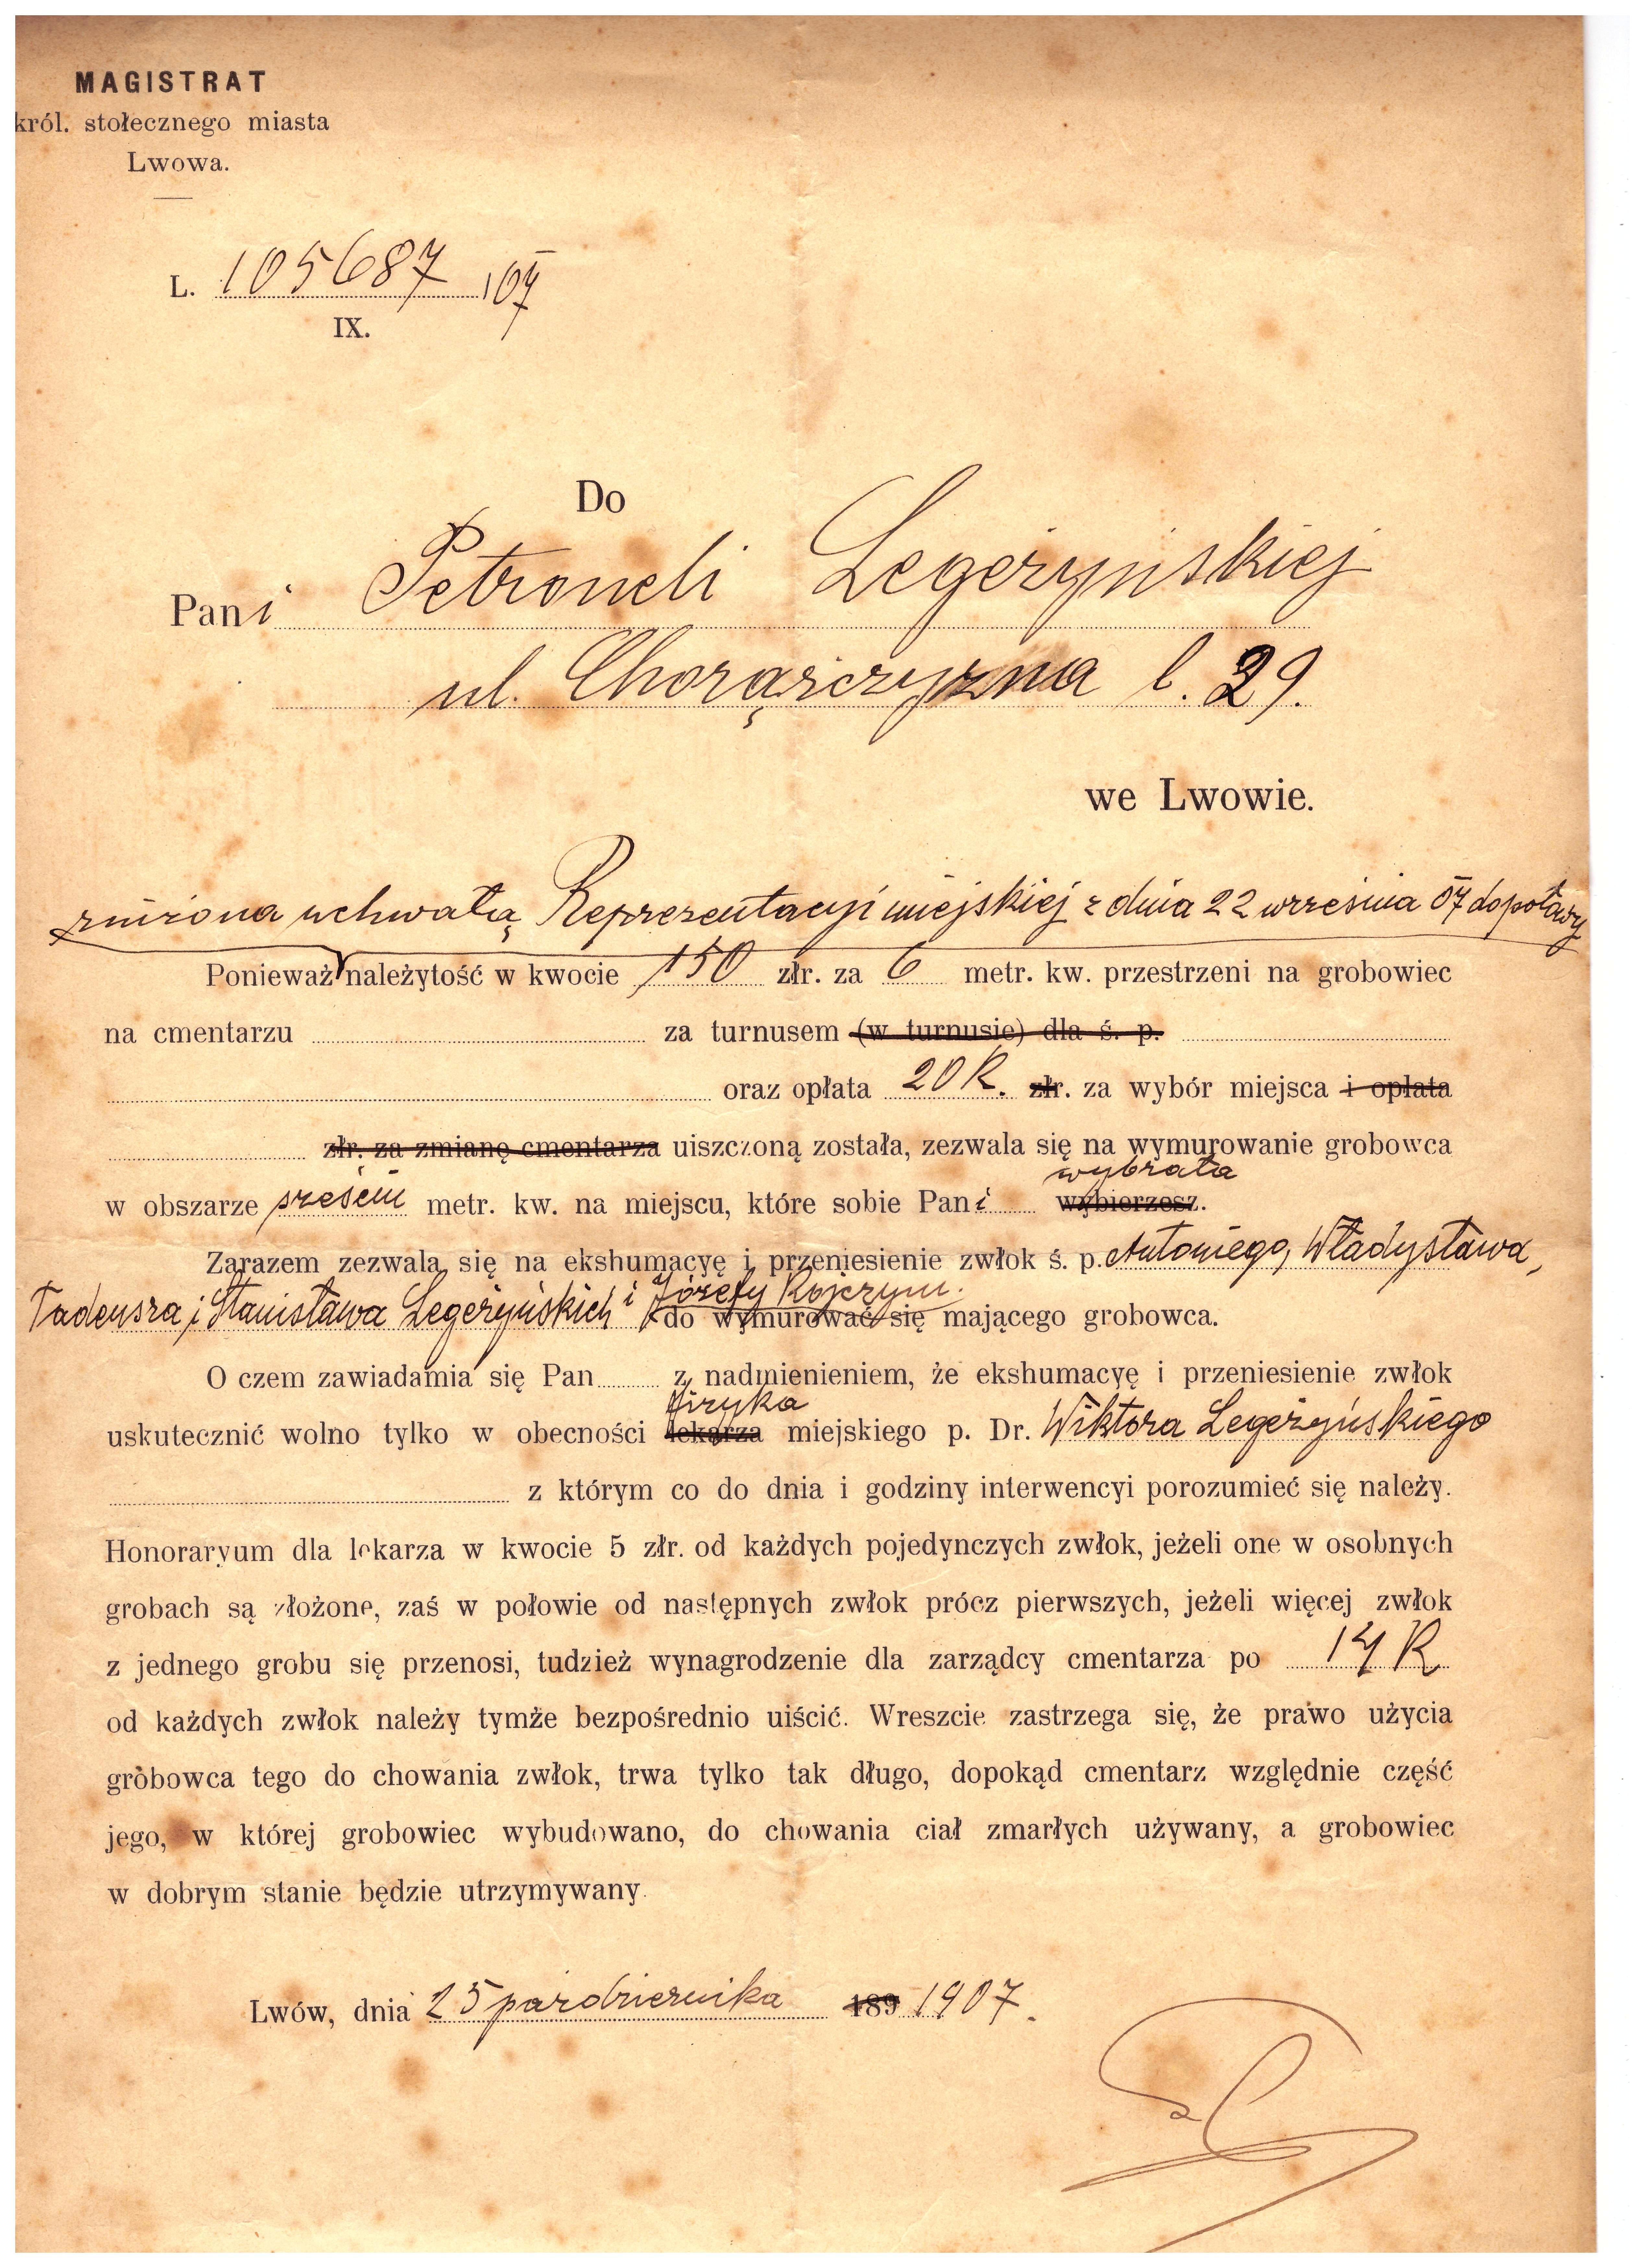 MAGISTRAT
król. stołecznego miasta
Lwowa.
L. 105687 107
IX.
Do
Pani Petroneli Legeżyńskiej
ul. Chorążczyzna l. 29.
we Lwowie.
zniżona uchwałą Reprezentacyi miejskiej z dnia 22 września 07 do połowy
Ponieważ należytość w kwocie 150 złr. za 6 metr. kw. przestrzeni na grobowiec
na cmentarzu za turnusem (w turnusie) dla ś. p.
oraz opłata 20 K. złr. za wybór miejsca i opłata
złr. za zmianę cmentarza uiszczoną została, zezwala się na wymurowanie grobowca
wybrała
w obszarze sześciu metr. kw. na miejscu, które sobie Pani wybierzesz.
Zarazem zezwala się na ekshumacyę i przeniesienie zwłok ś. p. Antoniego, Władysława,
Tadeusza i Stanisława Legeżyńskich i Józefy
do wymurować się mającego grobowca.
O czem zawiadamia się Pan z nadmienieniem, że ekshumacyę i przeniesienie zwłok
fizyka
uskutecznić wolno tylko w obecności lekarza miejskiego p. Dr. Wiktora Legeżyńskiego
z którym co do dnia i godziny interwencyi porozumieć się należy.
Honoraryum dla lekarza w kwocie 5 złr. od każdych pojedynczych zwłok, jeżeli one w osobnych
grobach są złożone, zaś w połowie od następnych zwłok prócz pierwszych, jeżeli więcej zwłok
z jednego grobu się przenosi, tudzież wynagrodzenie dla zarządcy cmentarza po 14 K
od każdych zwłok należy tymże bezpośrednio uiścić. Wreszcie zastrzega się, że prawo użycia
grobowca tego do chowania zwłok, trwa tylko tak długo, dopokąd cmentarz względnie część
jego, w której grobowiec wybudowano, do chowania ciał zmarłych używany, a grobowiec
w dobrym stanie będzie utrzymywany.
Lwów, dnia 25 października 189 1907.